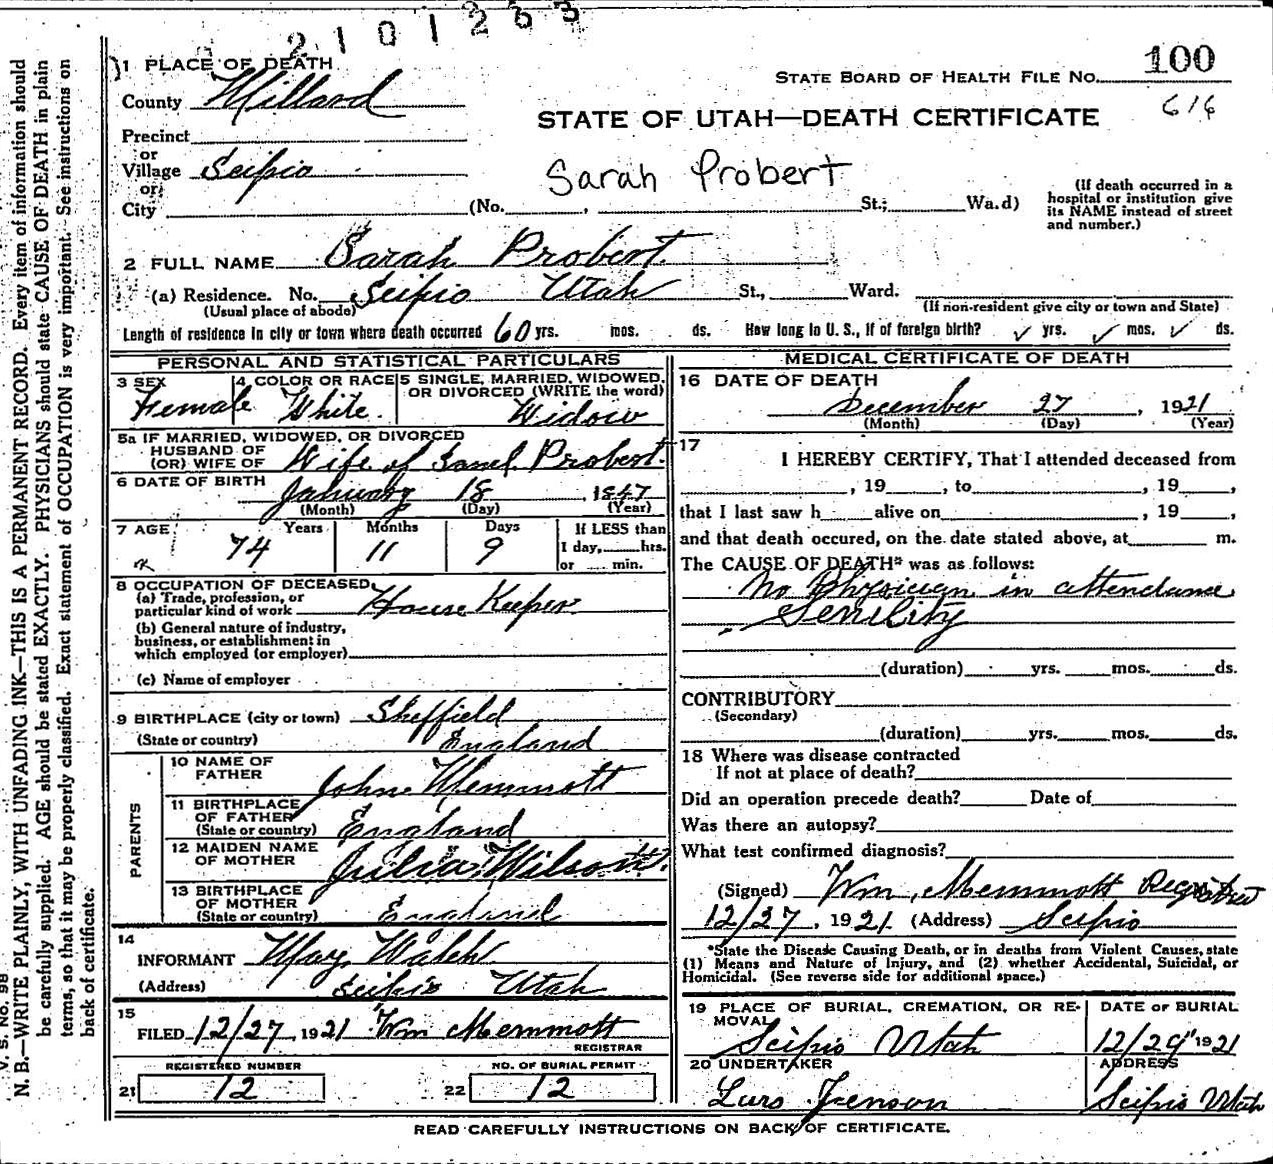 2101263
1 PLACE OF DEATH
STATE BOARD OF HEALTH FILE NO. 100
County Millard
616
STATE OF UTAH—DEATH CERTIFICATE
Precinct
or
Village Scipio
or
Sarah Probert
City (No. , St.; Wa.d)
(If death occurred in a
hospital or institution give
its NAME instead of street
and number.)
2 FULL NAME Sarah Probert
(a) Residence. No. Scipio Utah St., Ward.
(Usual place of abode) (If non-resident give city or town and State)
Length of residence in city or town where death occurred 60 yrs. mos. ds. How long in U. S., if of foreign birth? ✓ yrs. ✓ mos. ✓ ds.
PERSONAL AND STATISTICAL PARTICULARS
3 SEX
Female
4 COLOR OR RACE
White
5 SINGLE, MARRIED, WIDOWED,
OR DIVORCED (WRITE the word)
Widow
5a IF MARRIED, WIDOWED, OR DIVORCED
HUSBAND OF
(OR) WIFE OF Wife of Probert
6 DATE OF BIRTH
January 18, 1847
(Month) (Day) (Year)
7 AGE Years Months Days
74 11 9
If LESS than
1 day, hrs.
or min.
8 OCCUPATION OF DECEASED
(a) Trade, profession, or
particular kind of work House Keeper
(b) General nature of industry,
business, or establishment in
which employed (or employer)
(c) Name of employer
9 BIRTHPLACE (city or town) Sheffield
(State or country) England
PARENTS
10 NAME OF
FATHER John Memmott
11 BIRTHPLACE
OF FATHER
(State or country) England
12 MAIDEN NAME
OF MOTHER Julia Wilson
13 BIRTHPLACE
OF MOTHER
(State or country) England
14
INFORMANT May Walch
(Address) Scipio Utah
15
FILED 12/27, 1921 Wm Memmott
REGISTRAR
REGISTERED NUMBER
21 12
NO. OF BURIAL PERMIT
22 12
MEDICAL CERTIFICATE OF DEATH
16 DATE OF DEATH
December 27, 1921
(Month) (Day) (Year)
17
I HEREBY CERTIFY, That I attended deceased from
, 19 , to , 19 ,
that I last saw h alive on , 19 ,
and that death occured, on the date stated above, at m.
The CAUSE OF DEATH* was as follows:
No Physician in attendance
Senility
(duration) yrs. mos. ds.
CONTRIBUTORY
(Secondary)
(duration) yrs. mos. ds.
18 Where was disease contracted
If not at place of death?
Did an operation precede death? Date of
Was there an autopsy?
What test confirmed diagnosis?
(Signed) Wm. Memmott Registrar
12/27, 1921 (Address) Scipio
*State the Disease Causing Death, or in deaths from Violent Causes, state
(1) Means and Nature of Injury, and (2) whether Accidental, Suicidal, or
Homicidal. (See reverse side for additional space.)
19 PLACE OF BURIAL, CREMATION, OR RE-
MOVAL
Scipio Utah
DATE OF BURIAL
12/29" 1921
20 UNDERTAKER
Lars Jenson
ADDRESS
Scipio Utah
READ CAREFULLY INSTRUCTIONS ON BACK OF CERTIFICATE.
V. S. No. 98
N. B.—WRITE PLAINLY, WITH UNFADING INK—THIS IS A PERMANENT RECORD. Every item of information should
be carefully supplied. AGE should be stated EXACTLY. PHYSICIANS should state CAUSE OF DEATH in plain
terms, so that it may be properly classified. Exact statement of OCCUPATION is very important. See instructions on
back of certificate.